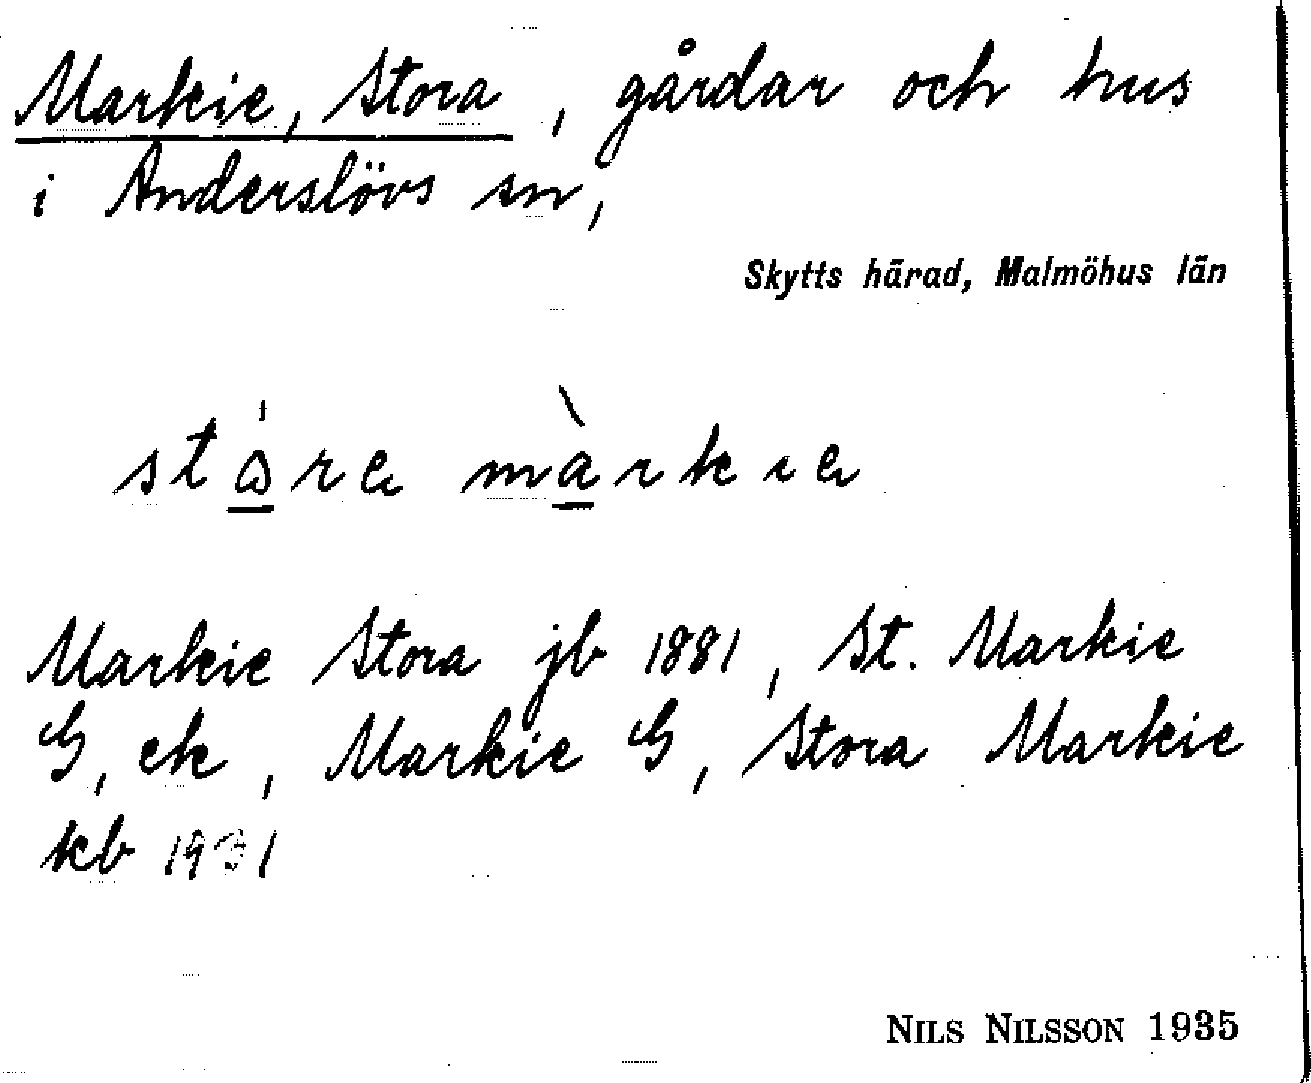 Markie, Stora, gårdar och hus
i Anderslövs sn,
Skytts härad, Malmöhus län
Markie Stora jb 1881, St. Markie
G, ek, Markie G, Stora Markie
kb 1931
NILS NILSSON 1935